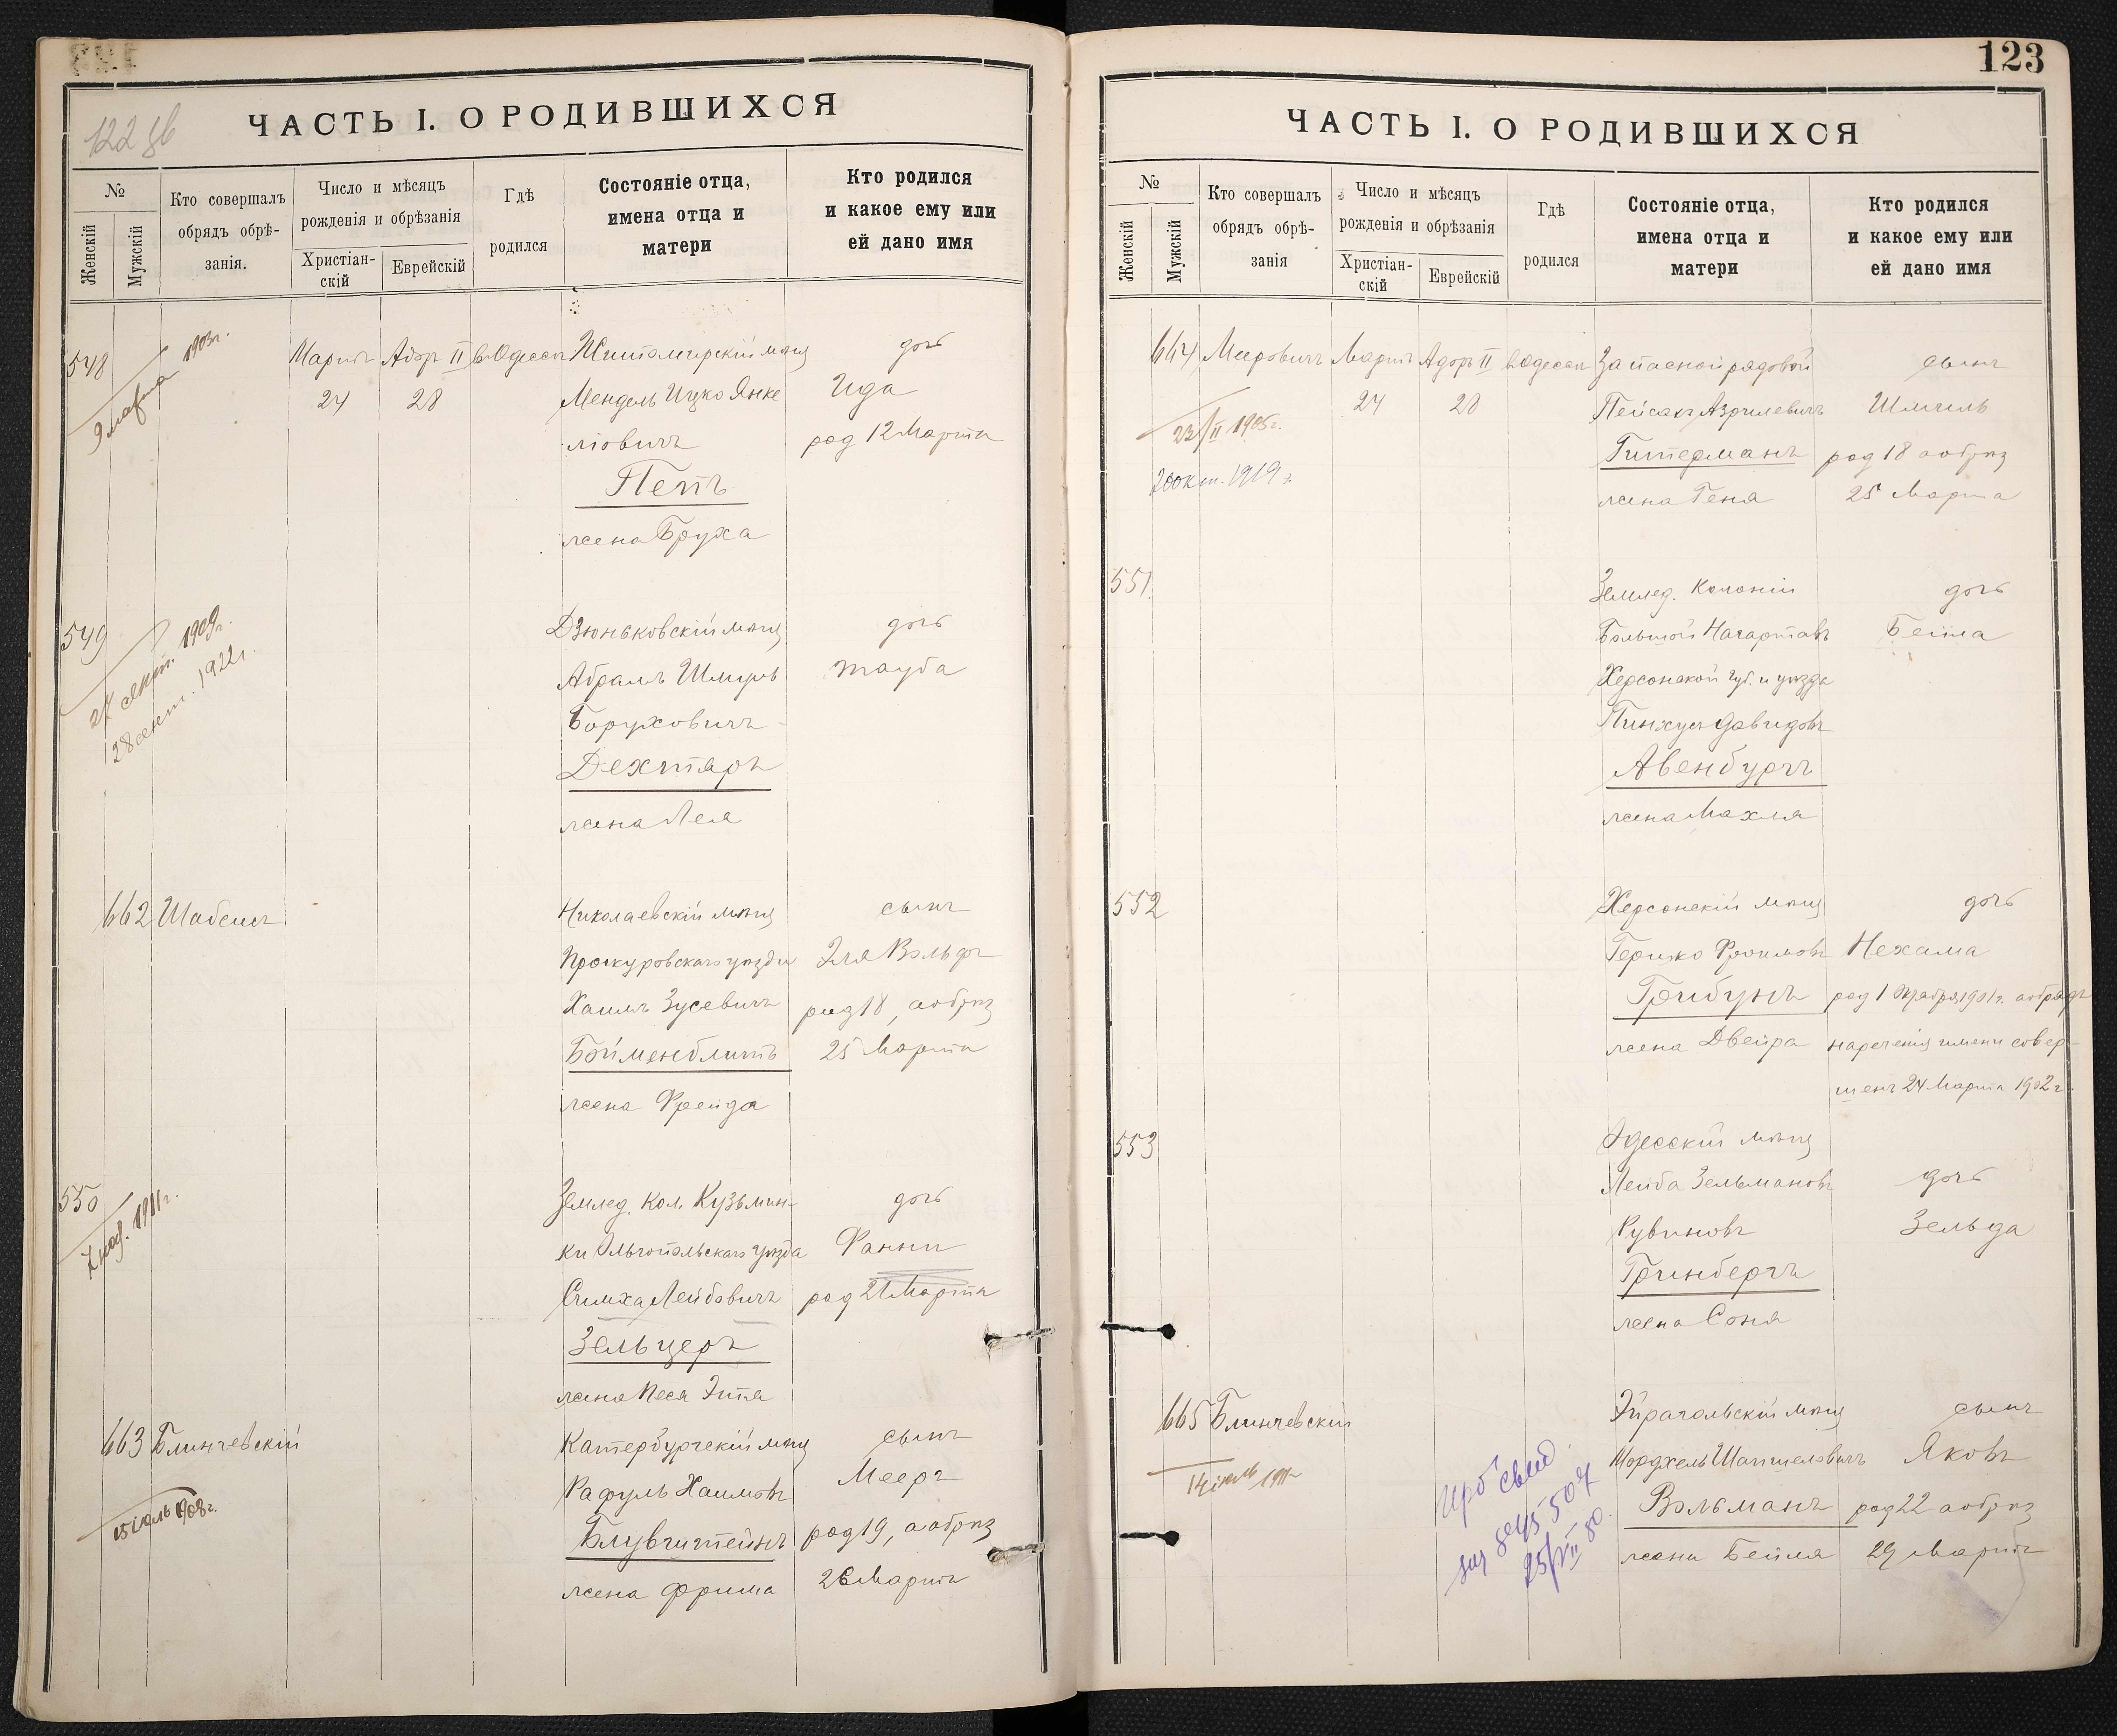 122 об
ЧАСТЬ I. О РОДИВШИХСЯ
№
Женскій
Мужскій
Кто совершалъ
обрядъ обрѣ-
занія.
Число и мѣсяцъ
рожденія и обрѣзанія
Христіан-
скій
Еврейскій
Гдѣ
родился
Состояніе отца,
имена отца и
матери
Кто родился
и какое ему или
ей дано имя
548
9 марта 1903г.
Мартъ Адоръ II в Одессѣ Житомирскій мѣщ дочь
24 28 Мендель Ицко Янке Ида
ліовичъ род 12 Марта
Петъ
жена Бруха
549
1909г.
28 сент. 1922г.
Дзюньковскій мѣщ дочь
Абрамъ Шмуль Тауба
Боруховичъ
Дехтяръ
жена Лея
662 Шабсисъ Николаевскій мѣщ сынъ
Проскуровскаго уѣзда Эля Вольфъ
Хаимъ Зусевичъ род 18, а обрѣз
Бойменблитъ 25 Марта
жена Фрейда
550
7 1911г.
Землед. Кол. Кузьмин- дочь
ки Ольгопольскаго уѣзда Фанни
Симха Лейбовичъ род 21 Марта
Зельцеръ
жена Песя Этта
663 Блинчевскій Катербургскій мѣщ сынъ
Рафуль Хаимовъ Мееръ
15 іюль 1908г.
Блувштейнъ род 19, а обрѣз
жена Фрима 26 Марта
123
ЧАСТЬ I. О РОДИВШИХСЯ
№
Женскій
Мужскій
Кто совершалъ
обрядъ обрѣ-
занія
Число и мѣсяцъ
рожденія и обрѣзанія
Христіан-
скій
Еврейскій
Гдѣ
родился
Состояніе отца,
имена отца и
матери
Кто родился
и какое ему или
ей дано имя
664 Мееровичъ Мартъ Адоръ II в Одессѣ Запасной рядовой сынъ
24 28 Пейсахъ Азрилевичъ Шмиль
23/II 1905г.
Гитерманъ род 18 а обрѣз
20 окт. 1919 г.
жена Геня 25 Марта
551 Землед. Колоніи дочь
Большой Нагартавъ Бейла
Херсонской Губ. и уѣзда
Пинхусъ Давидовъ
Авенбургъ
жена Махля
552 Херсонскій мѣщ дочь
Гершко Фроимовъ Нехама
Трибунъ род 1 Ноября 1901 г. а обрядъ
жена Двейра нареченія имени совер-
шенъ 24 Марта 1902 г.
553 Одесскій мѣщ
Лейба Зельмановъ дочь
Рувиновъ Зельда
Гринбергъ
жена Соня
665 Блинчевскій Эйрагольскій мѣщ сынъ
Мордхель Шапшелевичъ Яковъ
14 іюль 1911г
Вольманъ род 22 а обрѣз
жена Бейля 29 Марта
25/VII 80.